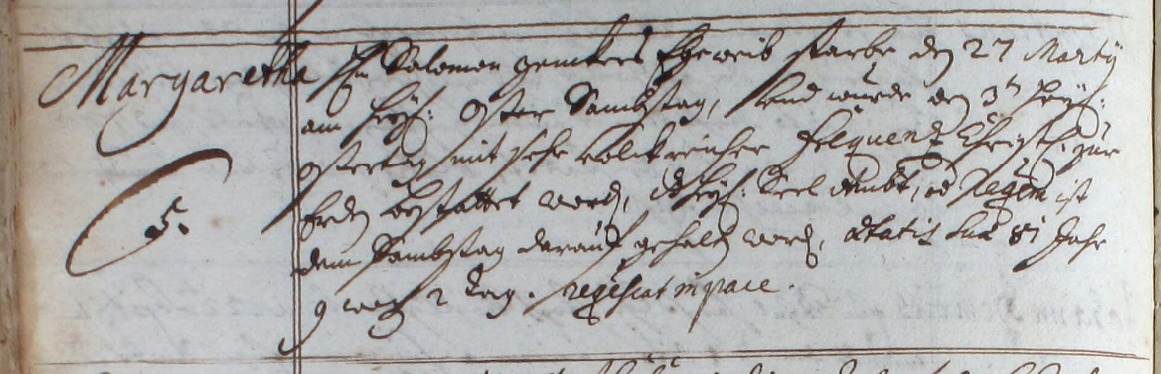 Margaretha
Hn Salomon Genckers Eheweib starbe den 27 Marty
am heÿl: Oster Sambstag, und wurde den 3t heÿl:
Ostertag mit sehr volckreicher frequentz Christl. zur
Erden bestattet word, heÿl: Seel Ambt, od Requiem ist
dem Sambstag darauf gehalten word, ætatis suæ 81 Jahr
9 woch 2 tag. requiescat in pace.
5.